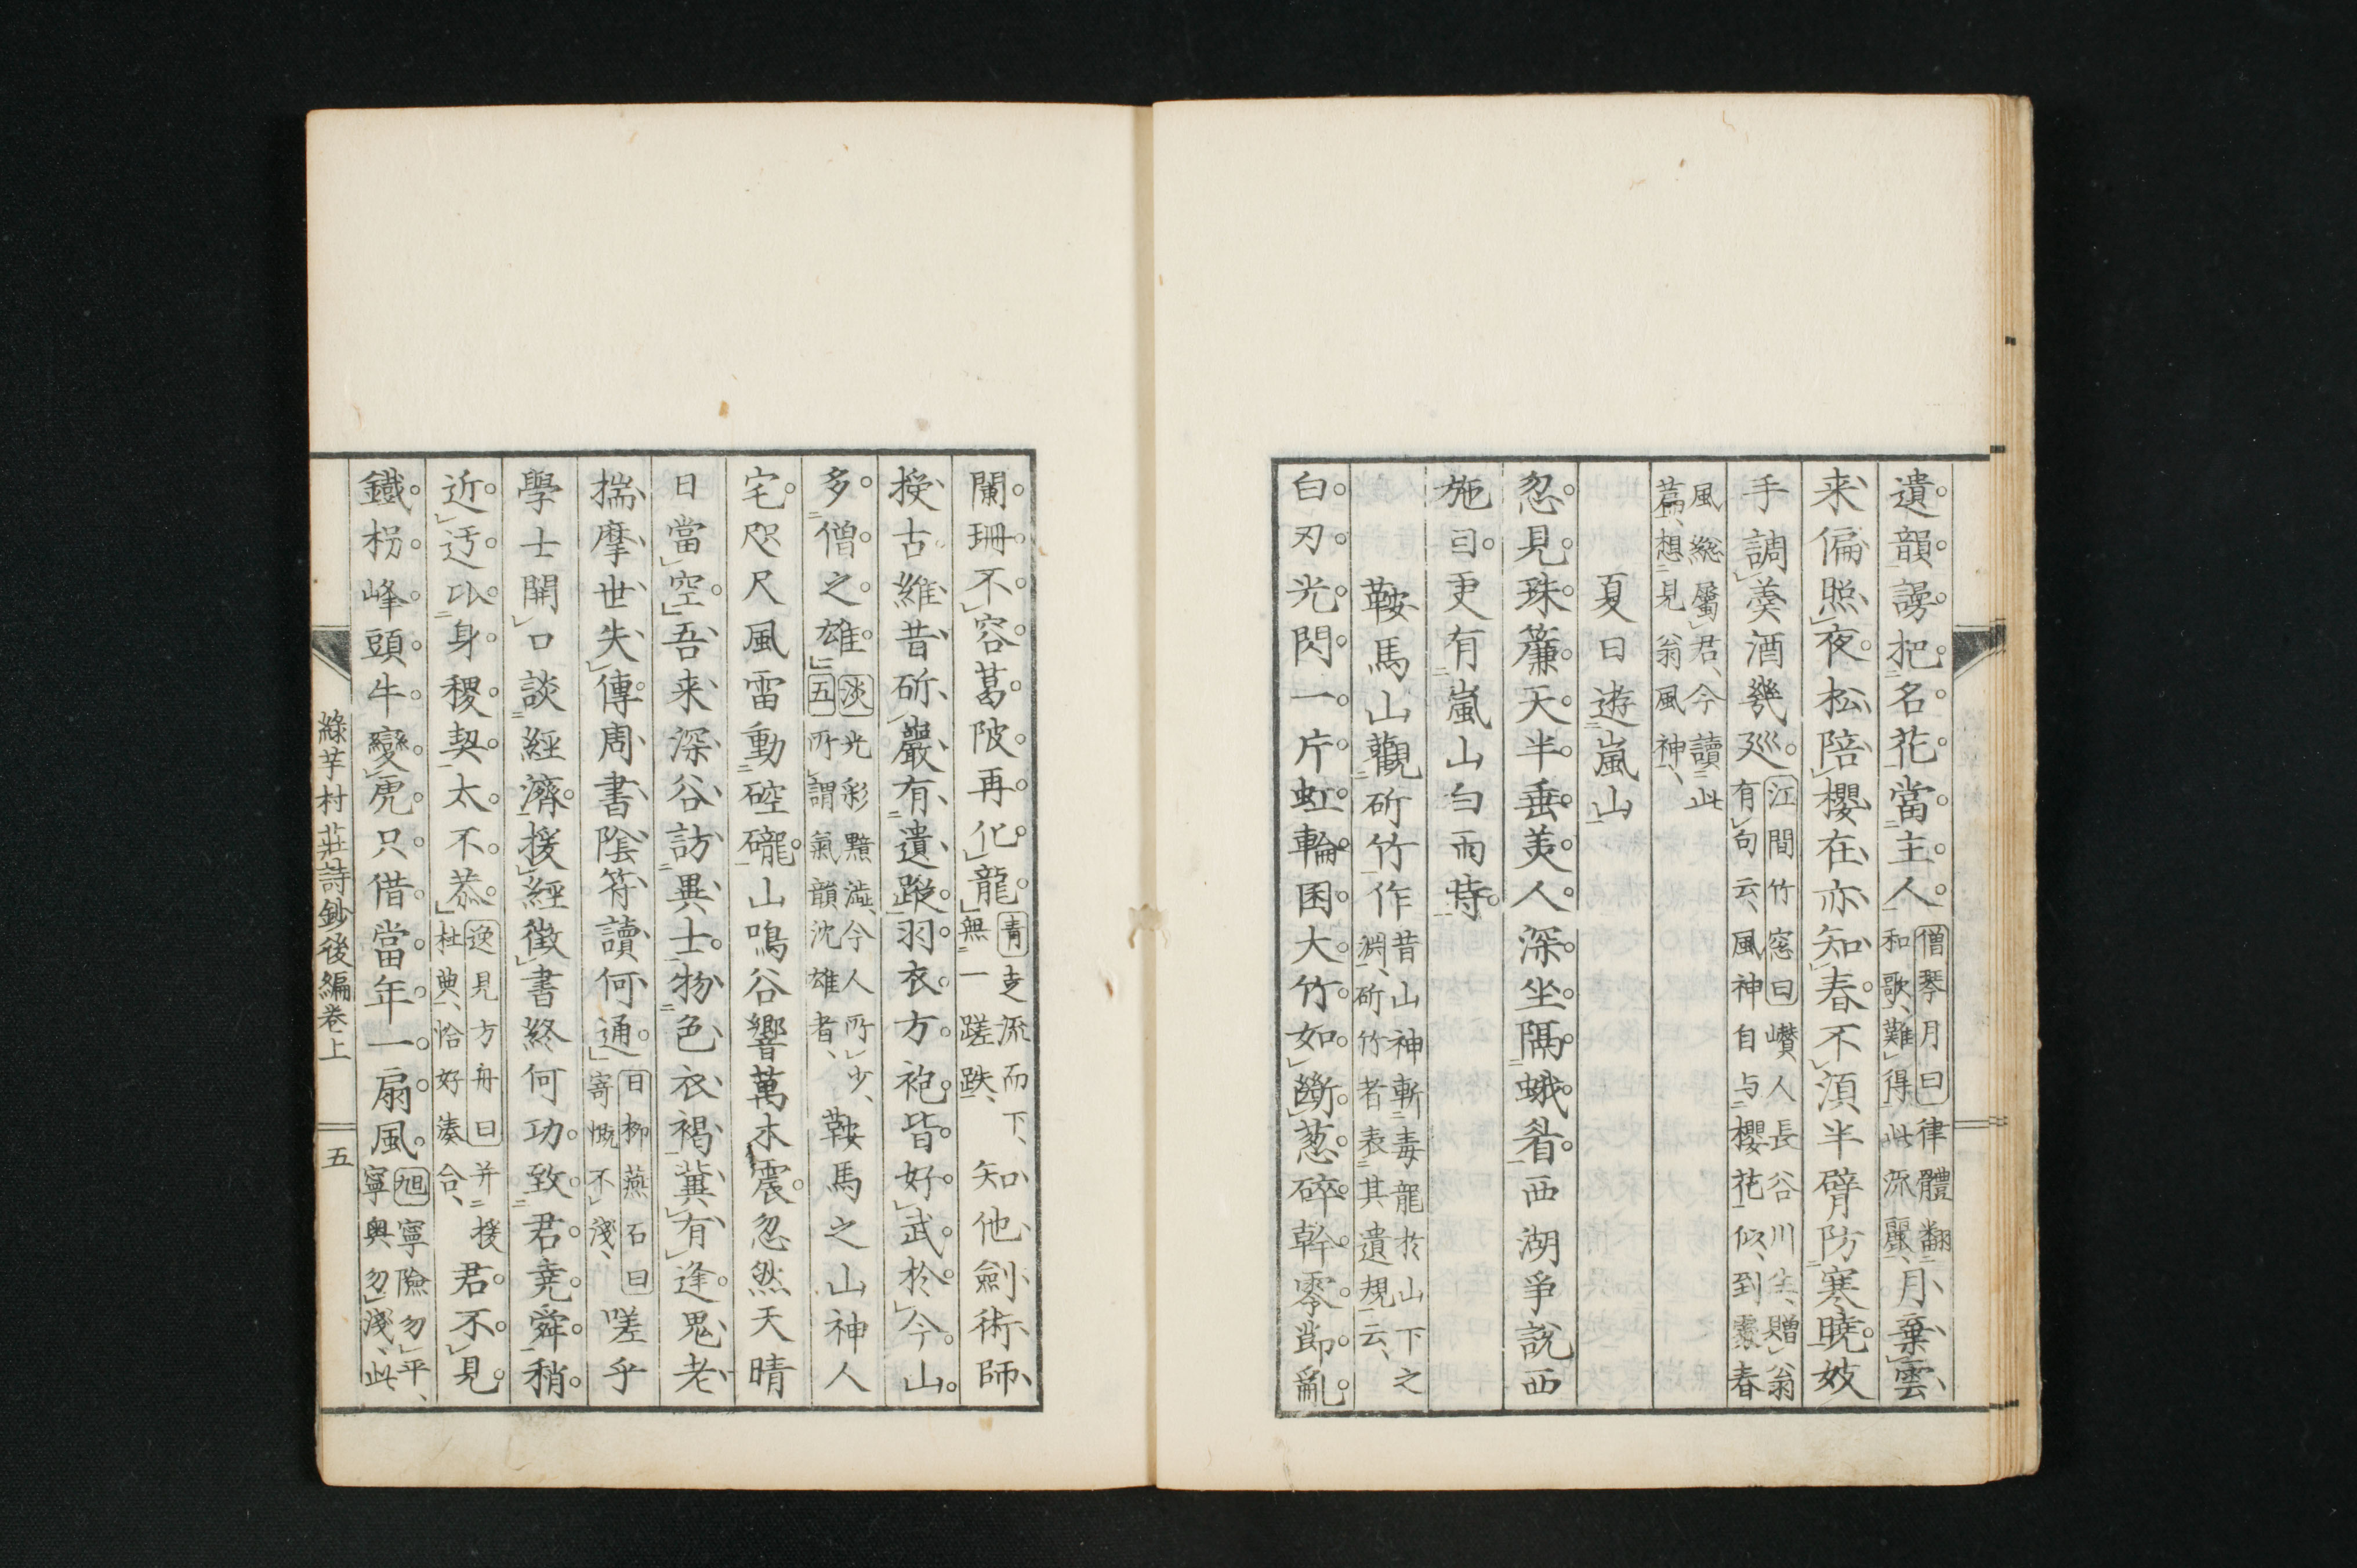 遺韻謗把名花當主人僧琴月曰律體翻和歌難得此流麗月棄雲
来偏照夜松陪櫻在亦知春不須半臂防寒曉妓
手調羮酒幾巡江間竹窓曰巑人長谷川生贈翁有句云風神自与櫻花似到處春
風総屬君今讀此篇想見翁風神
夏日遊嵐山
忽見珠簾天半垂美人深坐隔蛾眉西湖爭説西
施曰更有嵐山白雨時
鞍馬山觀斫竹作昔山神斬毒龍於山下之淵斫竹者表其遺規云
白刃光閃一片虹輪囷大竹如斷葱碎幹零節亂
闌珊不容葛陂再化龍青走流而下無一蹉跌知他劍術師
授古維昔斫巖有遺蹤羽衣方袍皆好武於今山
多僧之雄淡光彩黯澁今人所少五所謂氣韻沈雄者鞍馬之山神人
宅咫尺風雷動硿礲山鳴谷響萬木震忽然天晴
日當空吾来深谷訪異士物色衣褐冀有逢鬼老
揣摩世失傳周書陰符讀何通日柳燕石曰寄慨不淺嗟乎
學士開口談經濟援經徴書終何功致君堯舜稍
近迂比身稷契太不恭逸見方舟曰并援杜典恰好湊合君不見
鐵枴峰頭牛變虎只借當年一扇風旭寧險勿平寧奥勿淺此
綠芋村莊詩鈔後編卷上 五